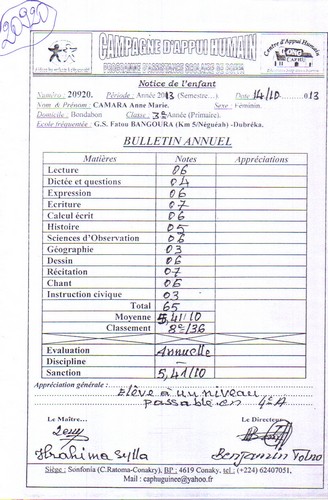 20920
CAMPAGNE D'APPUI HUMAIN
PROGRAMME D'ASSISTANCE SCOLAIRE EN GUINEE
Notice de l'enfant
Numéro : 20920. Période : Année 2013 (Semestre…). Date 14/10 ……013
Nom & Prénom : CAMARA Anne Marie. Sexe : Féminin.
Domicile : Bondabon Classe : 3è Année (Primaire).
Ecole fréquentée : G.S. Fatou BANGOURA (Km 5/Néguéah) -Dubréka.
BULLETIN ANNUEL
Matières Notes Appréciations
Lecture 06
Dictée et questions 04
Expression 06
Ecriture 07
Calcul écrit 06
Histoire 05
Sciences d'Observation 06
Géographie 03
Dessin 06
Récitation 07
Chant 06
Instruction civique 03
Total 65
Moyenne 5,41/10
Classement 8e/36
Evaluation Annuelle
Discipline —
Sanction 5,41/10
Appréciation générale :
Elève à un niveau
passable en 4e A
Le Maître... Le Directeur
Ibrahima Sylla Benjamin Tolno
Siège : Sonfonia (C.Ratoma-Conakry), BP : 4619 Conaky, tel : (+224) 62407051,
Mail : caphuguinee@yahoo.fr